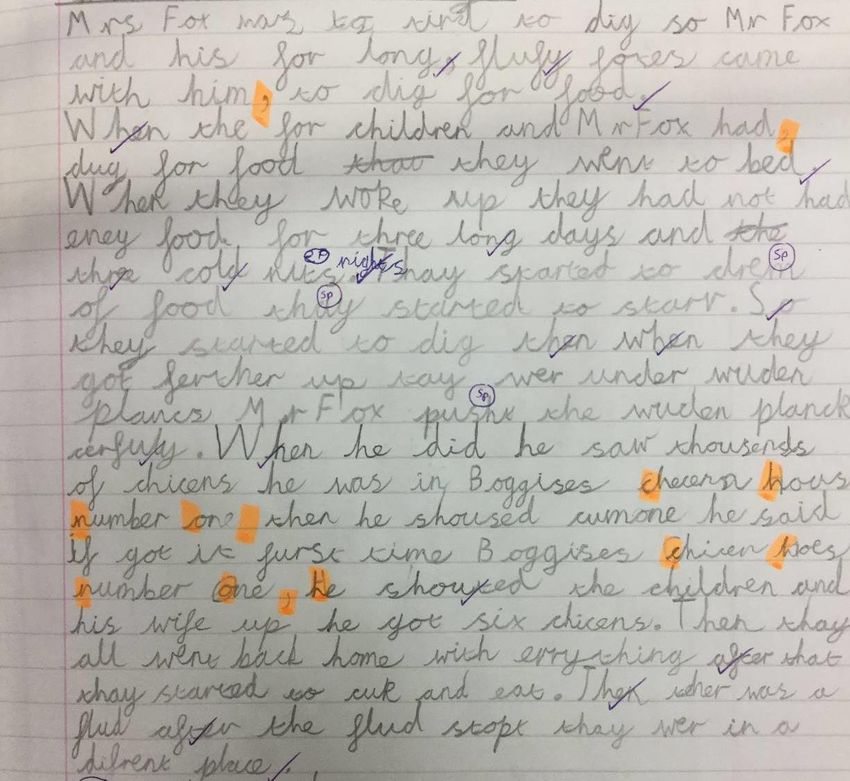 Mrs Fox was to tird to dig so Mr Fox
and his for long, flufy foxes came
with him, to dig for food.
When the for children and Mr Fox had,
dug for food that they went to bed.
When they woke up they had not had
eney food. for three long days and the
thre cold nits. sp nights Thay started to drem sp
of food thay sp started to starv. So
they started to dig then when they
got ferther up tay wer under wuden
plancs Mr Fox pusht sp the wuden planck
cerfuly. When he did he saw thousends
of chicens he was in Boggises checern hous
number one then he shoused cumone he said
if got it furst time Boggises chicen hoes
number one, he shouted the children and
his wife up he got six chicens. Then thay
all went back home with errything after that
thay started to cuk and eat. Then ther was a
flud after the flud stopt they wer in a
difrent place.